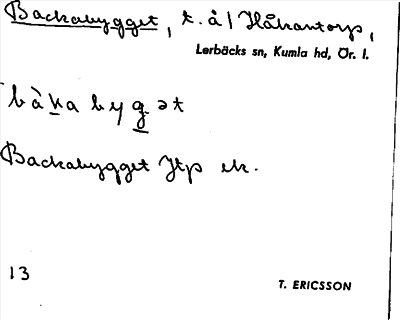 Backabygget, t. å/ Håkantorp,
Lerbäcks sn, Kumla hd, Ör. l.
bàka bygət
Backabygget Jtp ek.
13
T. ERICSSON